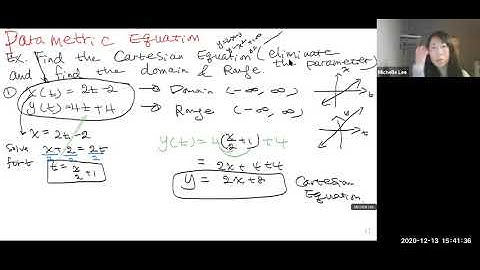 Parametric Equation
Ex. Find the Cartesian Equation (eliminate the parameter)
and find the domain & Range
① x(t) = 2t-2 → Domain (-∞, ∞)
y(t) = 4t+4 → Range (-∞, ∞)
x
t
y
t
x = 2t-2
Solve for t
x+2 = 2t
2 2 2
t = x/2 + 1
y(t) = 4(x/2 + 1) + 4
= 2x + 4 + 4
y = 2x + 8
Cartesian Equation
Michelle Lee
Michelle Lee
2020-12-13 15:41:36